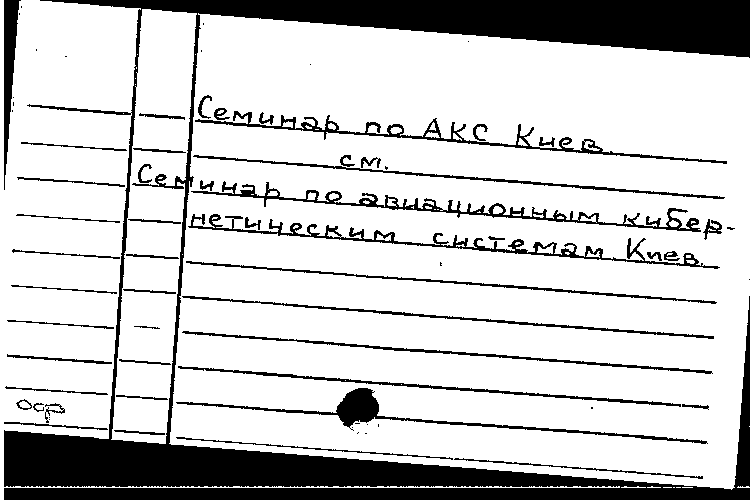 Семинар по АКС Киев.
см.
Семинар по авиационным кибер-
нетическим системам Киев.